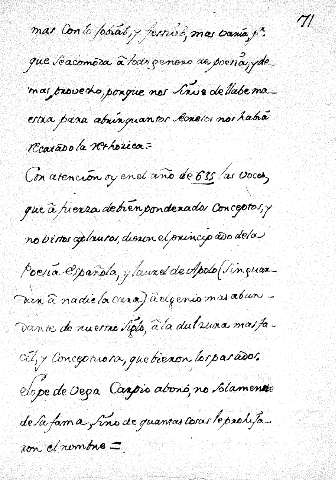 71
mas con lo sobrab, y festivo, mas varia, pr.
que se acomoda â todo genero de poesia, y de
mas provecho, porque nos sirve de llabe ma-
estra para abrir quantos secretos nos habia
recatado la rethorica =
Con atención oy en el año de 635 las voces,
que â fuerza de bien ponderados conceptos, y
no vistos aplausos, dieron el principado de la
Poesia Española, y laurel de Apolo (sin guar-
dar â nadie la cara) â el genio mas abun-
dante de nuestro siglo, â la dulzura mas fa-
cil, y conceptuosa, que vieron los pasados,
el Lope de Vega Carpio abonó, no solamente
de su fama, sino de quantas cosas le prohija-
ron el nombre =